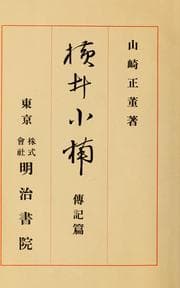 山崎正董著
横井小楠
傳記篇
東京
株式
會社
明治書院